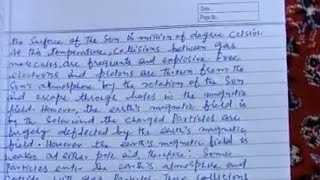 Date:
Page No:
The Surface of the Sun is million of degree celsius
At this temperature, Collisions between gas
molecules are frequents and explosive free
electrons and protons are thrown from the
Sun's atmosphere by the rotation of the Sun
and escape through holes in the magnetic
field. However, the earth's magnetic field is
by the Solar wind the charged Particles are
largely deflected by the earth's magnetic
field. However the earth's magnetic field is
weaker at either pole and therefore: Some
Particles enter the earth's atmosphere and
with gas Particles these collisions